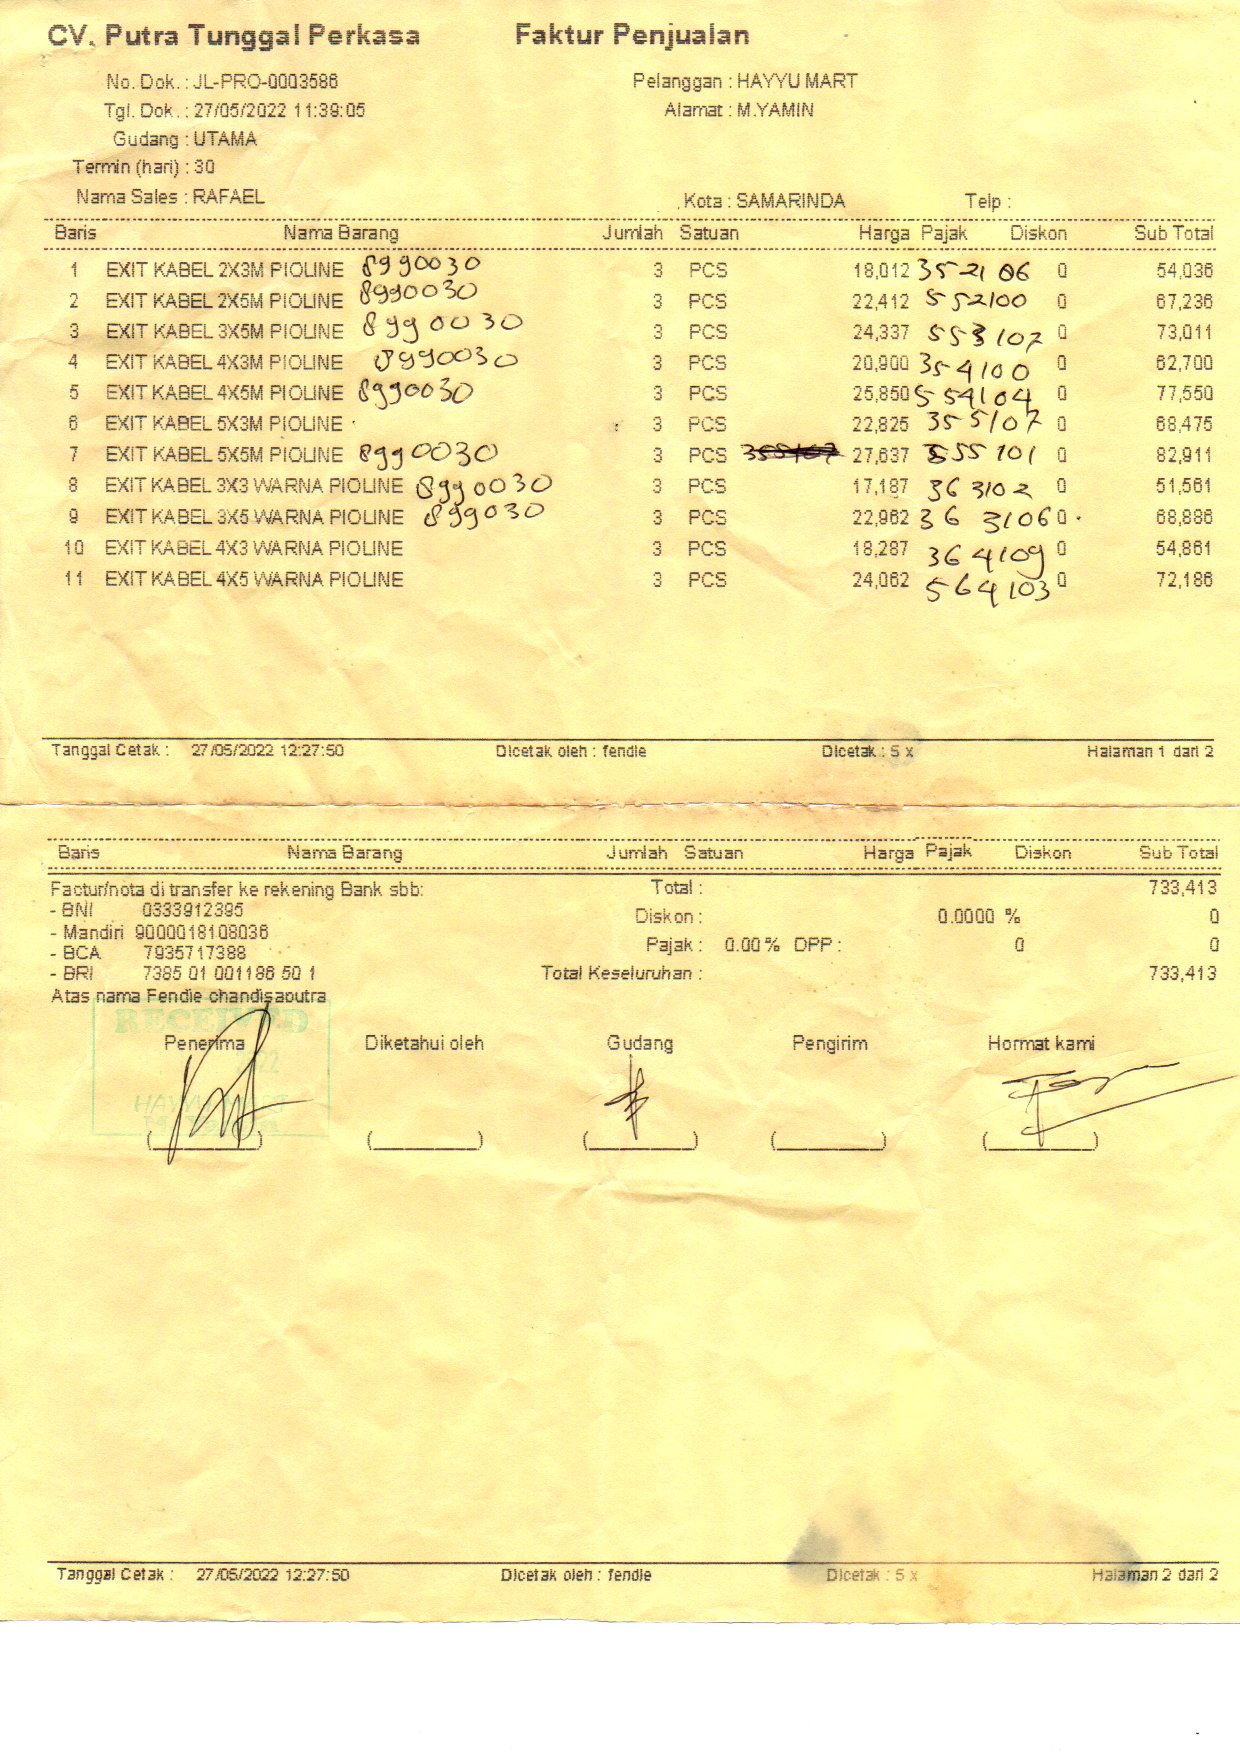 CV. Putra Tunggal Perkasa Faktur Penjualan
No. Dok. : JL-PRO-0003586 Pelanggan : HAYYU MART
Tgl. Dok. : 27/05/2022 11:39:05 Alamat : M.YAMIN
Gudang : UTAMA
Termin (hari) : 30
Nama Sales : RAFAEL Kota : SAMARINDA Telp :
Baris Nama Barang Jumlah Satuan Harga Pajak Diskon Sub Total
1 EXIT KABEL 2X3M PIOLINE 8990030 3 PCS 18,012 352106 0 54,036
2 EXIT KABEL 2X5M PIOLINE 8990030 3 PCS 22,412 552100 0 67,236
3 EXIT KABEL 3X5M PIOLINE 8990030 3 PCS 24,337 553107 0 73,011
4 EXIT KABEL 4X3M PIOLINE 8990030 3 PCS 20,900 354100 0 62,700
5 EXIT KABEL 4X5M PIOLINE 8990030 3 PCS 25,850 554104 0 77,550
6 EXIT KABEL 5X3M PIOLINE 3 PCS 22,825 355107 0 68,475
7 EXIT KABEL 5X5M PIOLINE 8990030 3 PCS 27,637 555101 0 82,911
8 EXIT KABEL 3X3 WARNA PIOLINE 8990030 3 PCS 17,187 363102 0 51,561
9 EXIT KABEL 3X5 WARNA PIOLINE 899030 3 PCS 22,962 363106 0 68,886
10 EXIT KABEL 4X3 WARNA PIOLINE 3 PCS 18,287 364109 0 54,861
11 EXIT KABEL 4X5 WARNA PIOLINE 3 PCS 24,062 564103 0 72,186
Tanggal Cetak : 27/05/2022 12:27:50 Dicetak oleh : fendie Dicetak : 5 x Halaman 1 dari 2
Baris Nama Barang Jumlah Satuan Harga Pajak Diskon Sub Total
Factur/nota di transfer ke rekening Bank sbb: Total : 733,413
- BNI 0333912395 Diskon : 0.0000 % 0
- Mandiri 9000018108036
- BCA 7935717388 Pajak : 0.00 % DPP : 0 0
- BRI 7385 01 001186 50 1 Total Keseluruhan : 733,413
Atas nama Fendie chandisaputra
RECEIVED
Penerima Diketahui oleh Gudang Pengirim Hormat kami
Tanggal Cetak : 27/05/2022 12:27:50 Dicetak oleh : fendie Dicetak : 5 x Halaman 2 dari 2